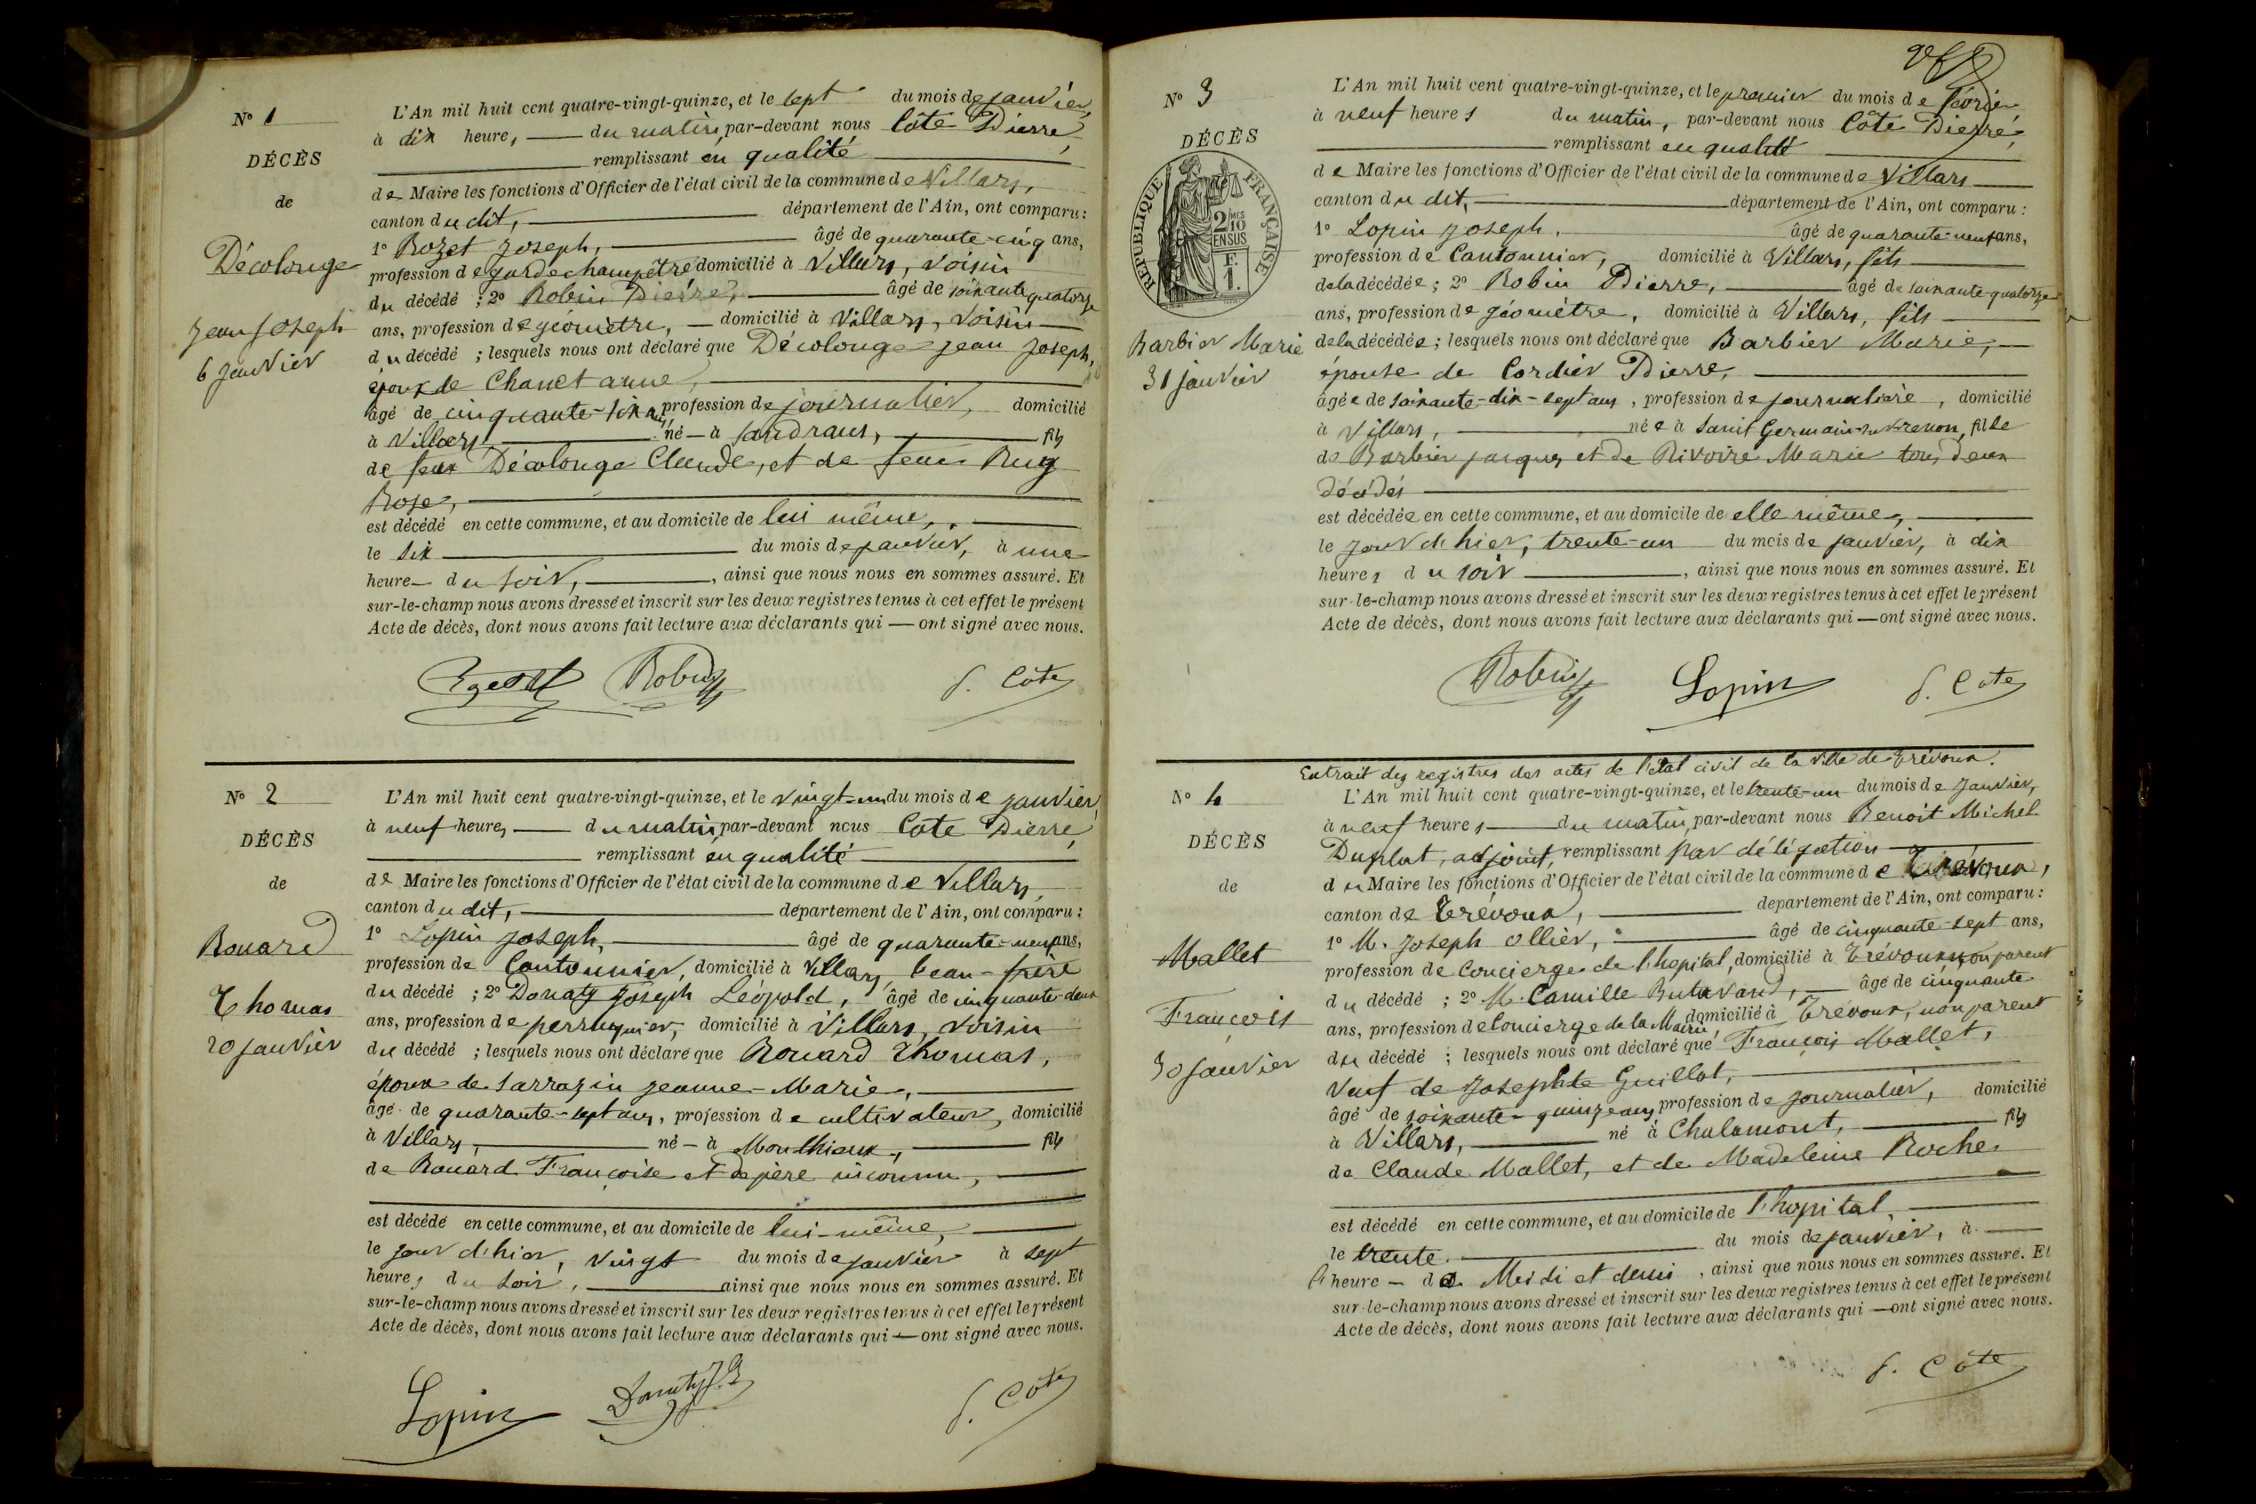 N° 1
DÉCÈS
de
Décolonge
Jean Joseph
6 janvier
L'An mil huit cent quatre-vingt-quinze, et le sept du mois de janvier,
à dix heure, du matin, par-devant nous Côte Pierre,
remplissant en qualité
de Maire les fonctions d'Officier de l'état civil de la commune de Villars,
canton dudit, département de l'Ain, ont comparu :
1° Bozet Joseph, âgé de quarante-cinq ans,
profession de garde champêtre domicilié à Villars, voisin
du décédé ; 2° Robin Pierre, âgé de soixante quatorze
ans, profession de géomètre, domicilié à Villars, voisin
du décédé ; lesquels nous ont déclaré que Décolonge Jean Joseph,
époux de Chanet Anne,
âgé de cinquante-six ans, profession de journalier, domicilié
à Villars, né à Sandrans, fils
de feu Décolonge Claude, et de feue Ruy
Rose,
est décédé en cette commune, et au domicile de lui même,
le six du mois de janvier, à une
heure du soir, ainsi que nous nous en sommes assuré. Et
sur-le-champ nous avons dressé et inscrit sur les deux registres tenus à cet effet le présent
Acte de décès, dont nous avons fait lecture aux déclarants qui — ont signé avec nous.
Robin P. Côte
N° 2
DÉCÈS
de
Rouard
Thomas
20 janvier
L'An mil huit cent quatre-vingt-quinze, et le vingt-un du mois de janvier,
à neuf heures, du matin, par-devant nous Côte Pierre,
remplissant en qualité
de Maire les fonctions d'Officier de l'état civil de la commune de Villars,
canton dudit, département de l'Ain, ont comparu :
1° Lopin Joseph, âgé de quarante-neuf ans,
profession de Cantonnier, domicilié à Villars, beau-frère
du décédé ; 2° Donaty Joseph Léopold, âgé de cinquante-deux
ans, profession de perruquier, domicilié à Villars, voisin
du décédé ; lesquels nous ont déclaré que Rouard Thomas,
époux de Sarrazin Jeanne-Marie,
âgé de quarante-sept ans, profession de cultivateur, domicilié
à Villars, né à Monthieux, fils
de Rouard Françoise et de père inconnu,
est décédé en cette commune, et au domicile de lui-même,
le jour d'hier, vingt du mois de janvier à sept
heures du soir, ainsi que nous nous en sommes assuré. Et
sur-le-champ nous avons dressé et inscrit sur les deux registres tenus à cet effet le présent
Acte de décès, dont nous avons fait lecture aux déclarants qui — ont signé avec nous.
Lopin Donaty J. L. P. Côte
N° 3
DÉCÈS
RÉPUBLIQUE FRANÇAISE
2/10 MES
EN SUS
F.
1.
Barbier Marie
31 janvier
L'An mil huit cent quatre-vingt-quinze, et le premier du mois de février
à neuf heures du matin, par-devant nous Côte Pierre,
remplissant en qualité
de Maire les fonctions d'Officier de l'état civil de la commune de Villars
canton dudit, département de l'Ain, ont comparu :
1° Lopin Joseph, âgé de quarante-neuf ans,
profession de Cantonnier, domicilié à Villars, fils
de la décédée ; 2° Robin Pierre, âgé de soixante-quatorze
ans, profession de géomètre, domicilié à Villars, fils
de la décédée ; lesquels nous ont déclaré que Barbier Marie,
épouse de Cordier Pierre,
âgée de soixante-dix-sept ans, profession de journalière, domicilié
à Villars, née à Saint Germain-sur-Renon, fille
de Barbier Jacques et de Rivoire Marie tous deux
décédés
est décédée en cette commune, et au domicile de elle même,
le jour d'hier, trente-un du mois de janvier, à dix
heures du soir, ainsi que nous nous en sommes assuré. Et
sur-le-champ nous avons dressé et inscrit sur les deux registres tenus à cet effet le présent
Acte de décès, dont nous avons fait lecture aux déclarants qui — ont signé avec nous.
Robin Lopin P. Côte
Extrait des registres des actes de l'état civil de la ville de Trévoux.
N° 4
DÉCÈS
de
Mallet
François
30 janvier
L'An mil huit cent quatre-vingt-quinze, et le trente-un du mois de janvier,
à neuf heures du matin, par-devant nous Benoit Michel
Duplat, adjoint, remplissant par délégation
du Maire les fonctions d'Officier de l'état civil de la commune de Trévoux,
canton de Trévoux, département de l'Ain, ont comparu :
1° M. Joseph Ollier, âgé de cinquante-sept ans,
profession de Concierge de l'hopital, domicilié à Trévoux, non parent
du décédé ; 2° M. Camille Butavand, âgé de cinquante
ans, profession de Concierge de la Mairie, domicilié à Trévoux, non parent
du décédé ; lesquels nous ont déclaré que François Mallet,
Veuf de Josephte Guillot,
âgé de soixante-quinze ans profession de journalier, domicilié
à Villars, né à Chalamont, fils
de Claude Mallet, et de Madeleine Roche
est décédé en cette commune, et au domicile de l'hopital,
le trente du mois de janvier, à
l'heure de Midi et demi, ainsi que nous nous en sommes assuré. Et
sur-le-champ nous avons dressé et inscrit sur les deux registres tenus à cet effet le présent
Acte de décès, dont nous avons fait lecture aux déclarants qui — ont signé avec nous.
P. Côte